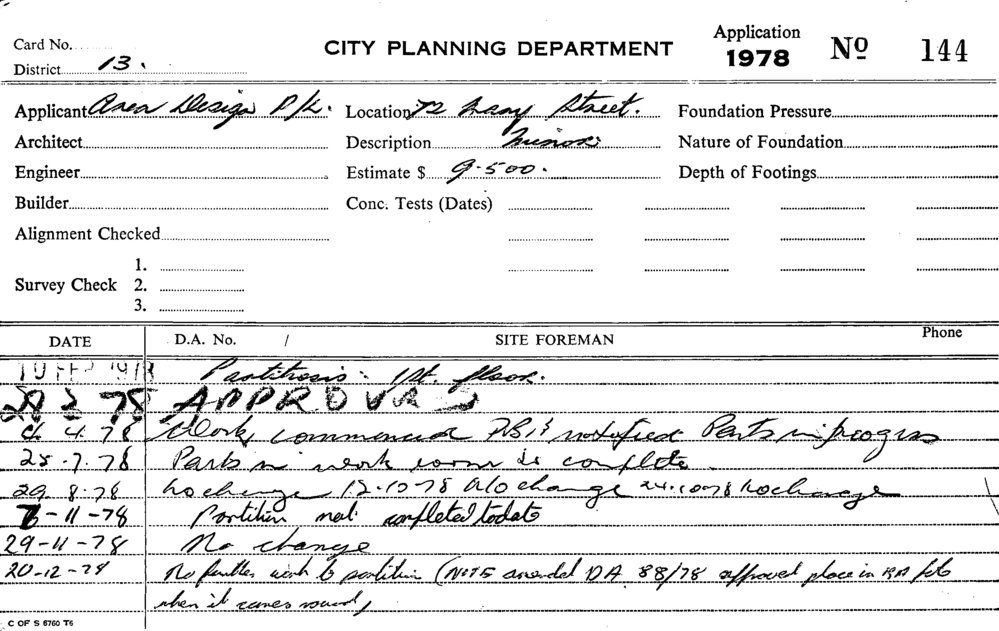 Card No.
CITY PLANNING DEPARTMENT
Application
1978
No 144
District 13.
Applicant Area Design P/L.
Location 72 Mary Street.
Foundation Pressure
Architect
Description Minor
Nature of Foundation
Engineer
Estimate $ 9.500.
Depth of Footings
Builder
Conc. Tests (Dates)
Alignment Checked
Survey Check
1.
2.
3.
DATE D.A. No. / SITE FOREMAN Phone
10 FEB 1978 Partitions: 1st. floor.
3 78 APPROVAL
4. 4. 78 Work commenced notified Parts in progress
25.7.78 Parts in work room is complete.
29.8.78 No change 12-10-78 No change 24.10.78 No change
7-11-78 Partition not completed to date
29-11-78 No change
20-12-78 No further work to partition (NOTE amended DA 88/78 approved place in BA file
when it comes round)
C OF S 6760 T6